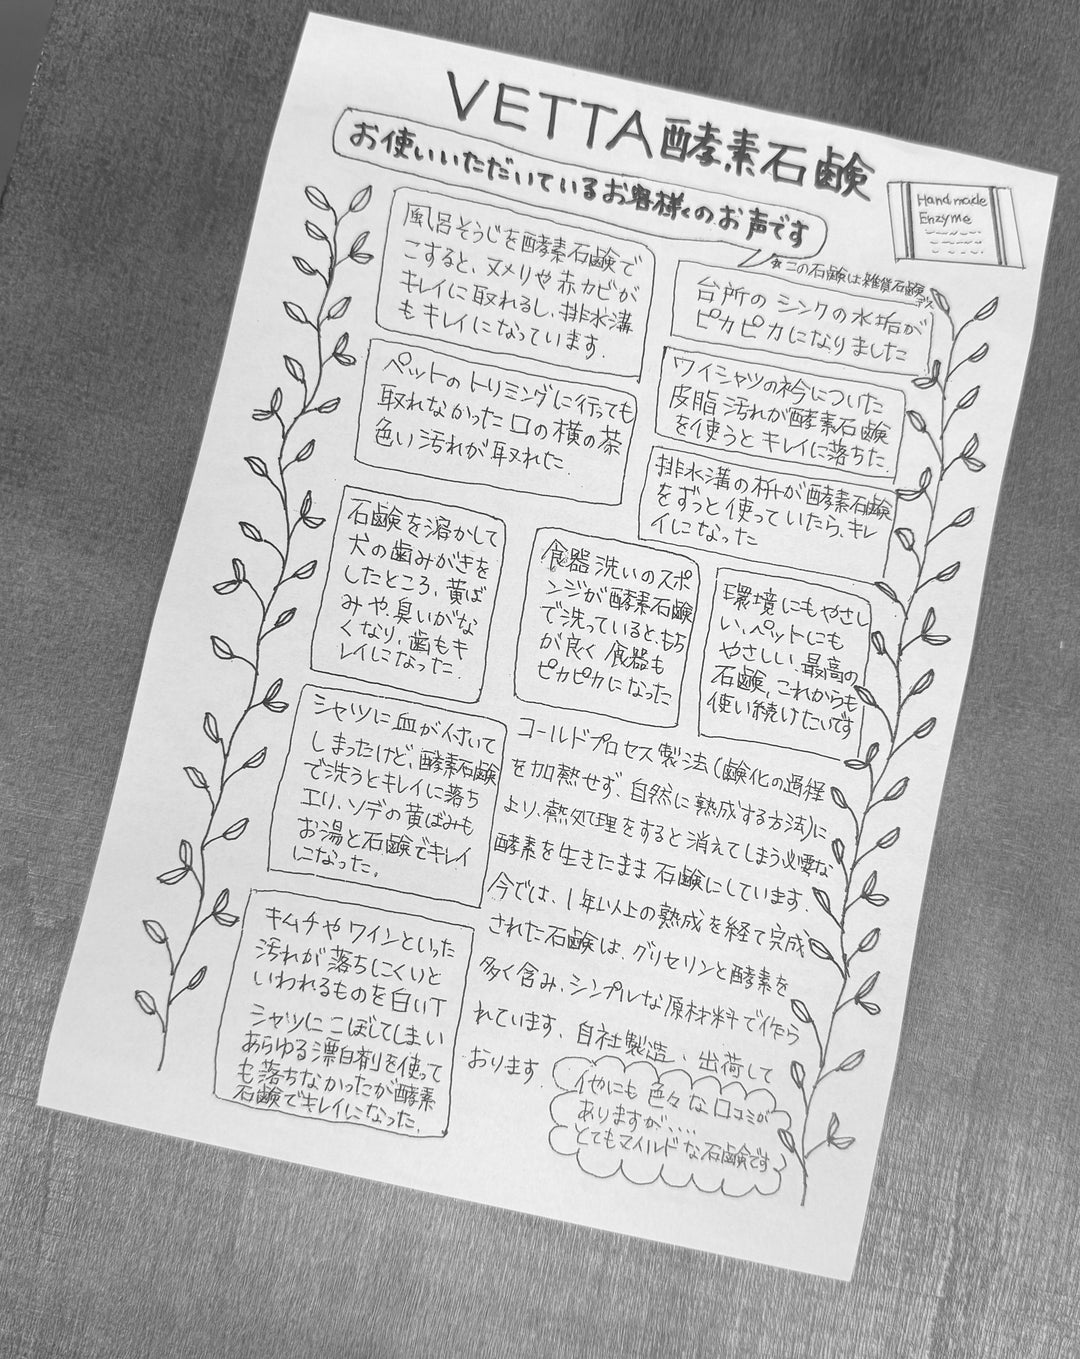 VETTA酵素石鹸
お使いいただいているお客様のお声です
Handmade
Enzyme
※この石鹸は雑貨石鹸です
風呂そうじを酵素石鹸で
こすると、ヌメリや赤カビが
キレイに取れるし、排水溝
もキレイになっています.
台所のシンクの水垢が
ピカピカになりました
ペットのトリミングに行っても
取れなかった口の横の茶
色い汚れが取れた.
ワイシャツの衿についた
皮脂汚れが酵素石鹸
を使うとキレイに落ちた.
排水溝の枡が酵素石鹸
をずっと使っていたら、キレ
イになった
石鹸を溶かして
犬の歯みがきを
したところ、黄ば
みや、臭いがな
くなり、歯もキ
レイになった.
食器洗いのスポ
ンジが酵素石鹸
で洗っていると、もち
が良く食器も
ピカピカになった
環境にもやさし
い、ペットにも
やさしい、最高の
石鹸、これからも
使い続けたいです
シャツに血が付いて
しまったけど、酵素石鹸
で洗うとキレイに落ち
エリ、ソデの黄ばみも
お湯と石鹸でキレイ
になった.
キムチやワインといった
汚れが落ちにくいと
いわれるものを白いT
シャツにこぼしてしまい
あらゆる漂白剤を使って
も落ちなかったが酵素
石鹸でキレイになった.
コールドプロセス製法(鹸化の過程
を加熱せず、自然に熟成する方法)に
より、熱処理をすると消えてしまう必要な
酵素を生きたまま石鹸にしています.
今では、1年以上の熟成を経て完成
された石鹸は、グリセリンと酵素を
多く含み、シンプルな原材料で作ら
れています、自社製造、出荷して
おります.
他にも色々な口コミが
ありますが、...
とてもマイルドな石鹸です